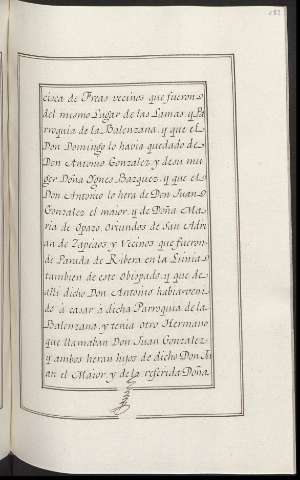 cisca de Preas vecinos que fueron
del mismo Lugar de las Lamas, y Pa
rroquia de la Balenzana, y que el
Don Domingo lo habia quedado de
Don Antonio Gonzalez y de su mu
ger Doña Ygnes Bazquez, y que el
Don Antonio lo hera de Don Juan
Gonzalez el maior, y de Doña Ma
ria de Opazo, Oriundos de San Adri
an de Zapeaos y Vecinos que fueron
de Parada de Ribera en la Limia
tambien de este Obispado, y que de
alli dicho Don Antonio habia veni
do á casar á dicha Parroquia de la
Balenzana, y tenia otro Hermano
que llamaban Don Juan Gonzalez
y ambos heran hijos de dicho Don Ju
an el Maior, y de la referida Doña